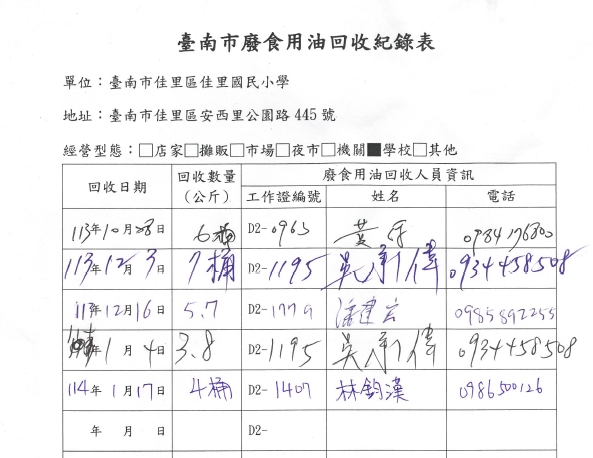 臺南市廢食用油回收紀錄表
單位：臺南市佳里區佳里國民小學
地址：臺南市佳里區安西里公園路 445 號
經營型態：□店家□攤販□市場□夜市□機關■學校□其他
回收日期 回收數量（公斤） 廢食用油回收人員資訊
工作證編號 姓名 電話
113年10月28日 6桶 D2-0963 黃 0984176800
113年12月3日 7桶 D2-1195 吳承偉 0934458508
113年12月16日 5.7 D2-1779 潘建宏 0985892255
年1月4日 3.8 D2-1195 吳承偉 0934458508
114年1月17日 4桶 D2-1407 林鈞漢 0986500126
年 月 日 D2-